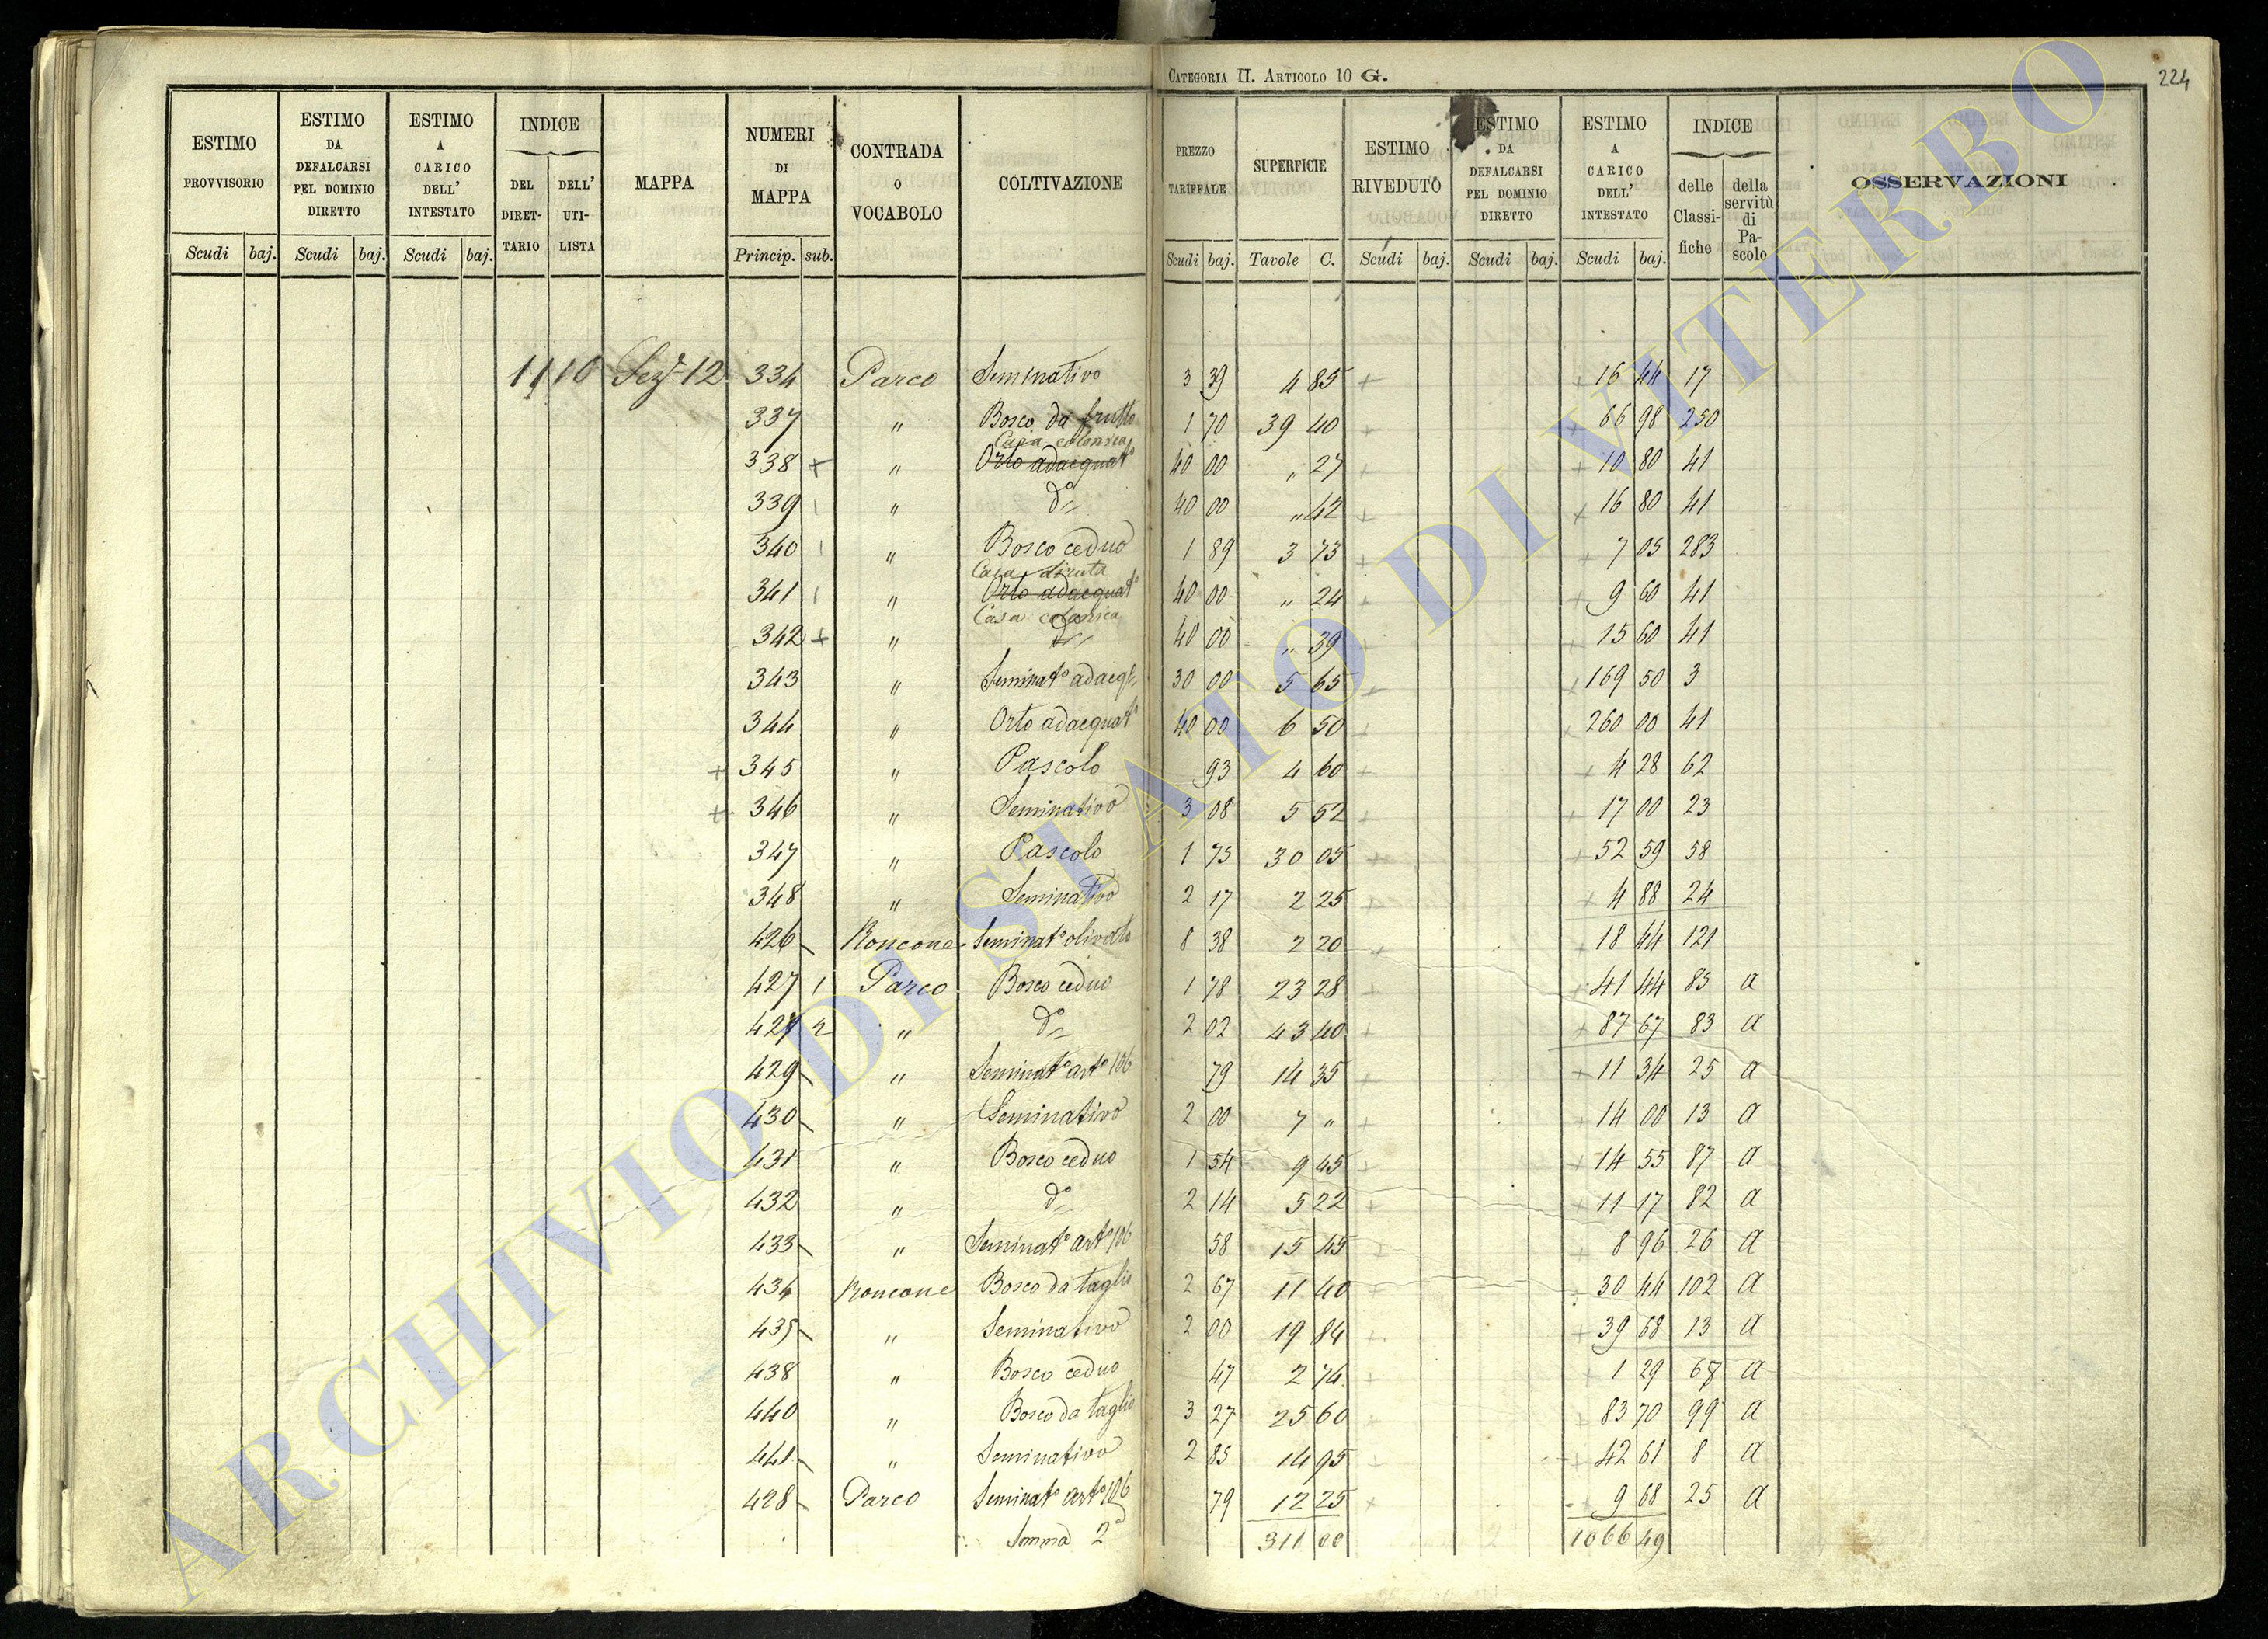 CATEGORIA II. ARTICOLO 10 G.
224
ESTIMO PROVVISORIO
ESTIMO DA DEFALCARSI PEL DOMINIO DIRETTO
ESTIMO A CARICO DELL' INTESTATO
INDICE
DEL DIRETTARIO
DELL' UTILISTA
MAPPA
NUMERI DI MAPPA
CONTRADA O VOCABOLO
COLTIVAZIONE
PREZZO TARIFFALE
SUPERFICIE
ESTIMO RIVEDUTO
ESTIMO DA DEFALCARSI PEL DOMINIO DIRETTO
ESTIMO A CARICO DELL' INTESTATO
INDICE
delle Classifiche
della servitù di Pascolo
OSSERVAZIONI
Scudi baj. Scudi baj. Scudi baj. Princip. sub. Scudi baj. Tavole C. Scudi baj. Scudi baj. Scudi baj.
11 10 Sez. 12 334 Parco Seminativo 3 39 4 85 + + 16 44 17
337 " Bosco da frutto 1 70 39 40 + + 66 98 250
Casa colonica
338 + " Orto adacquat° 40 00 " 27 + + 10 80 41
339 " d° 40 00 " 42 + + 16 80 41
340 " Bosco ceduo 1 89 3 73 + + 7 05 283
Casa diruta
341 " Orto adacquat° 40 00 " 24 + + 9 60 41
Casa colonica
342 + " d° 40 00 " 39 + + 15 60 41
343 " Seminat° adacq. 30 00 5 65 + + 169 50 3
344 " Orto adacquat° 40 00 6 50 + + 260 00 41
+ 345 " Pascolo 93 4 60 + + 4 28 62
+ 346 " Seminativo 3 08 5 52 + + 17 00 23
347 " Pascolo 1 75 30 05 + + 52 59 58
348 " Seminativo 2 17 2 25 + + 4 88 24
426 Roncone Seminat° olivato 8 38 2 20 + + 18 44 121
427 1 Parco Bosco ceduo 1 78 23 28 + + 41 44 85 a
427 2 " d° 2 02 43 40 + + 87 67 83 a
429 " Seminat° art° 106 79 14 35 + + 11 34 25 a
430 " Seminativo 2 00 7 " + + 14 00 13 a
431 " Bosco ceduo 1 54 9 45 + + 14 55 87 a
432 " d° 2 14 5 22 + + 11 17 82 a
433 " Seminat° art° 106 58 15 45 + + 8 96 26 a
434 Roncone Bosco da taglio 2 67 11 40 + + 30 44 102 a
435 " Seminativo 2 00 19 84 + + 39 68 13 a
438 " Bosco ceduo 47 2 74 + + 1 29 67 a
440 " Bosco da taglio 3 27 25 60 + + 83 70 99 a
441 " Seminativo 2 85 14 95 + + 42 61 8 a
428 Parco Seminat° art° 106 79 12 25 + + 9 68 25 a
Somma 2ª 311 00 1066 49
ARCHIVIO DI STATO DI VITERBO